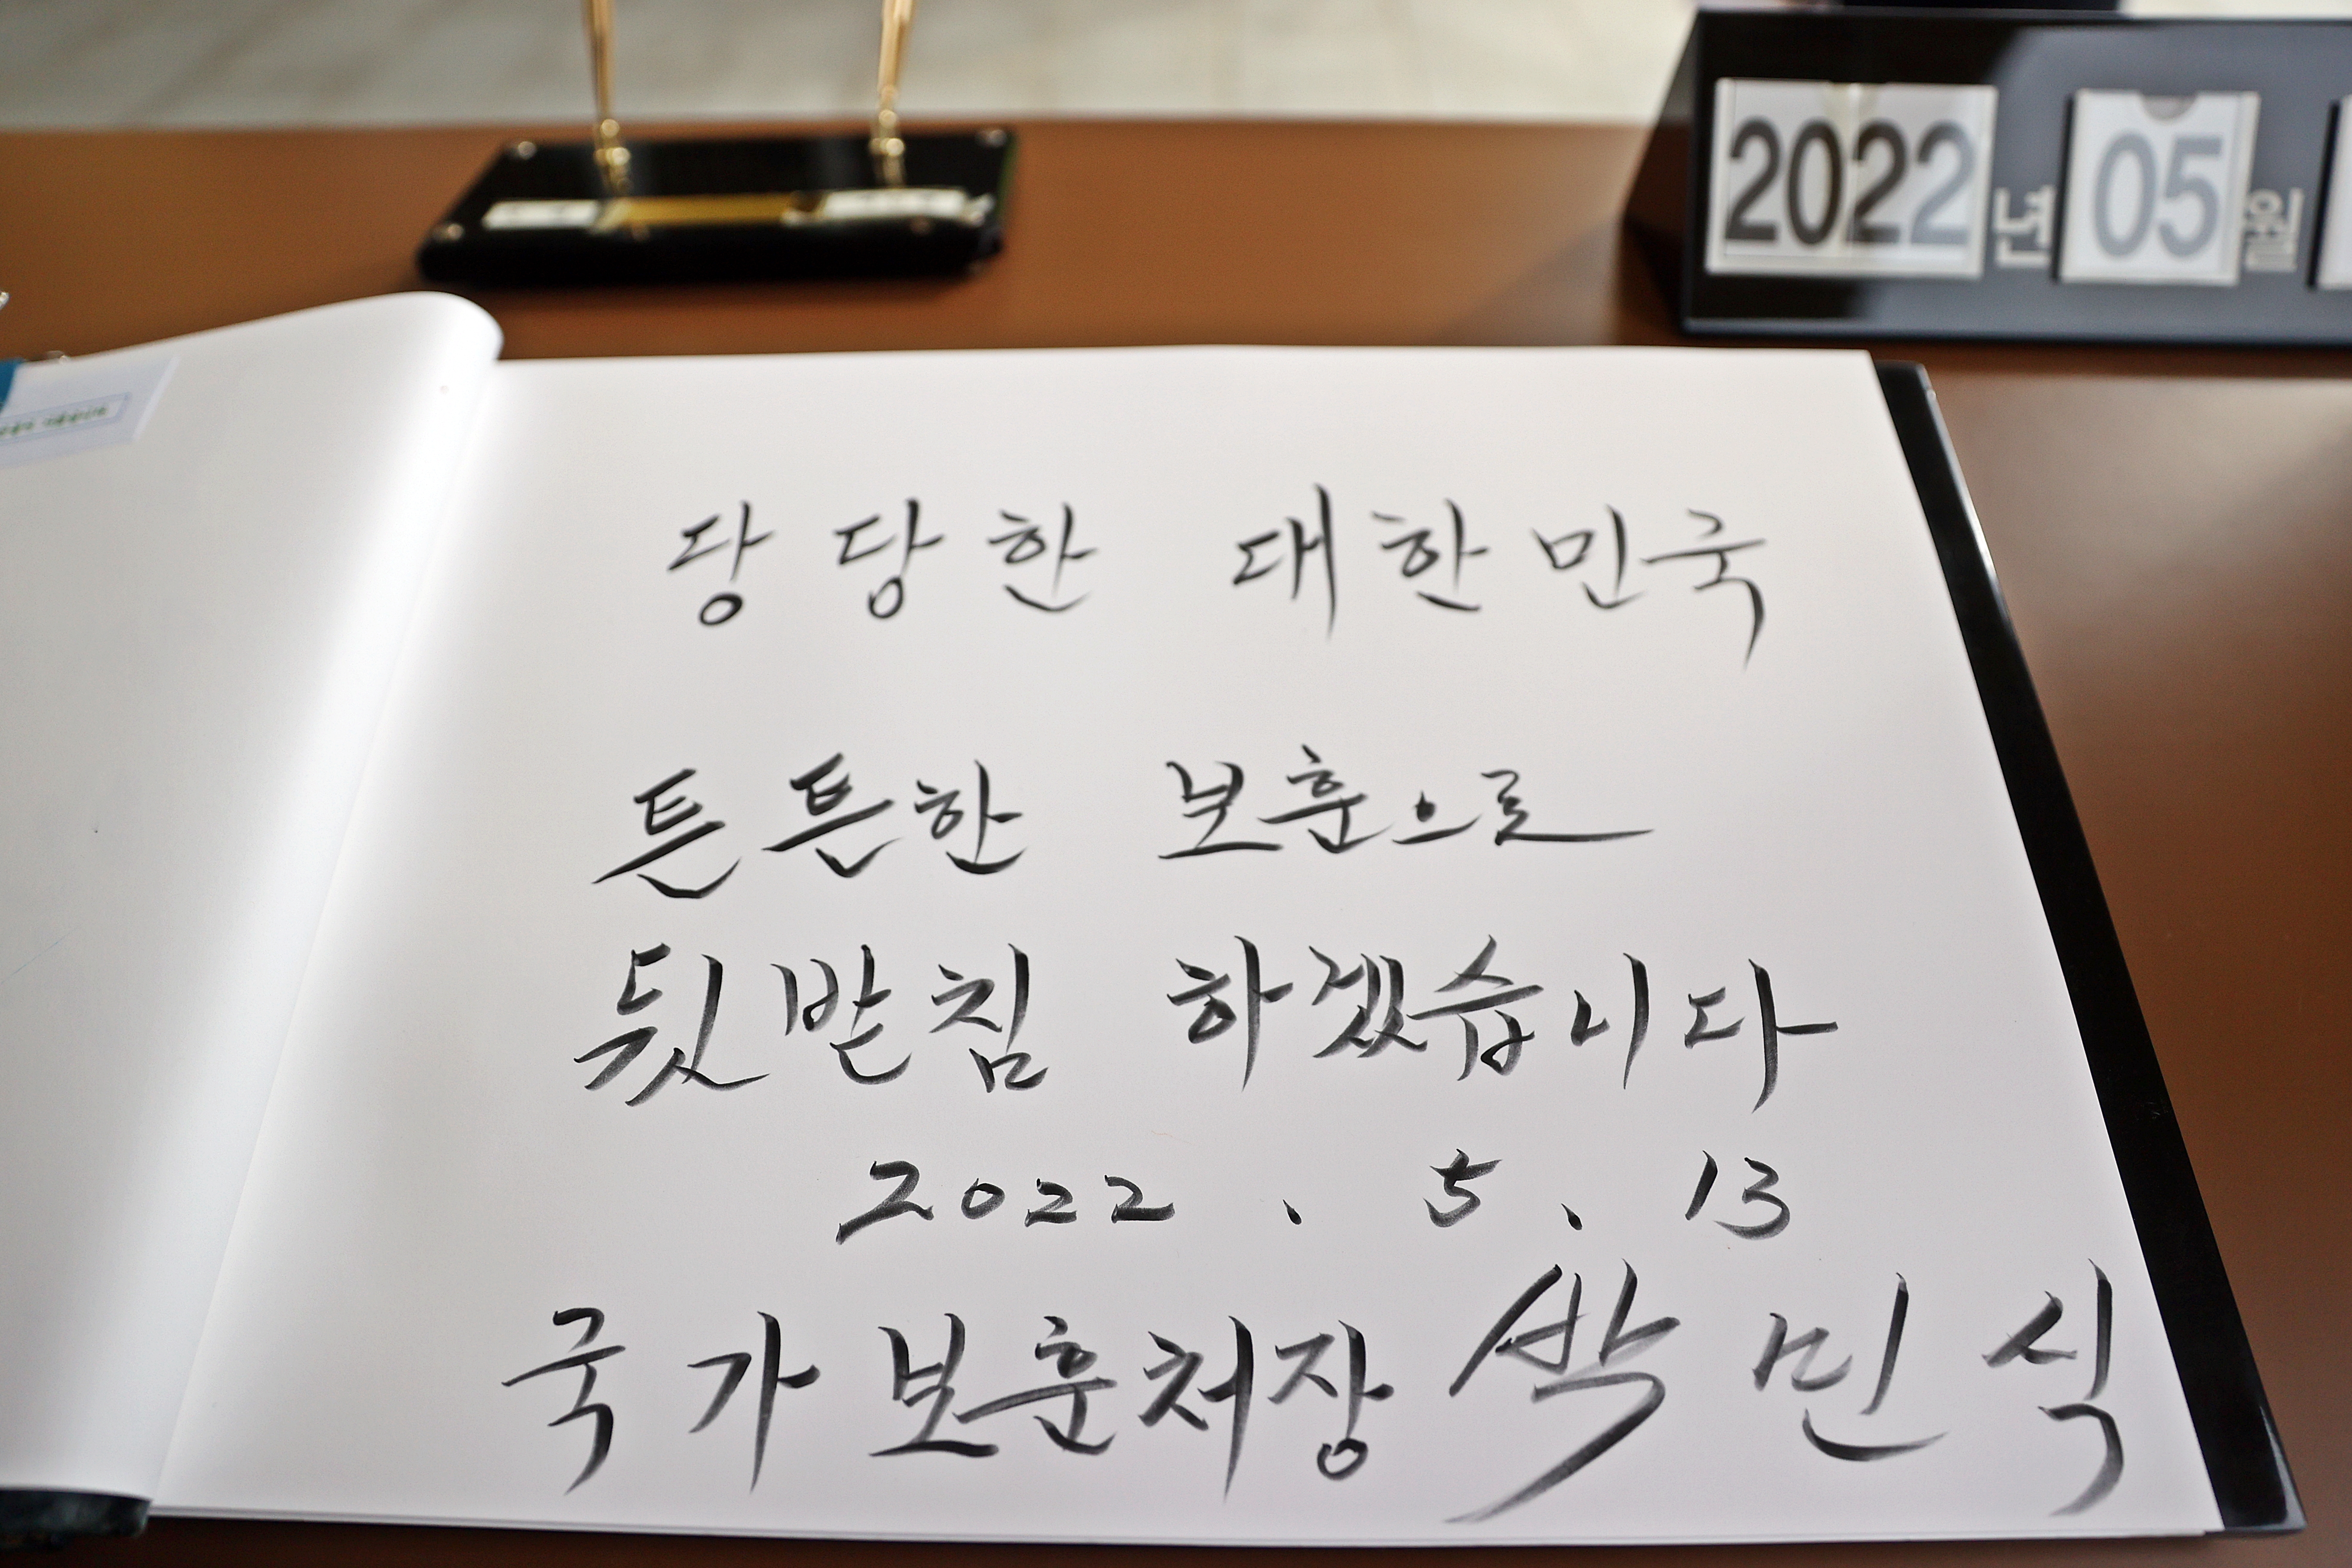 2022년 05월
당당한 대한민국
튼튼한 보훈으로
뒷받침 하겠습니다
2022. 5. 13
국가보훈처장 박민식